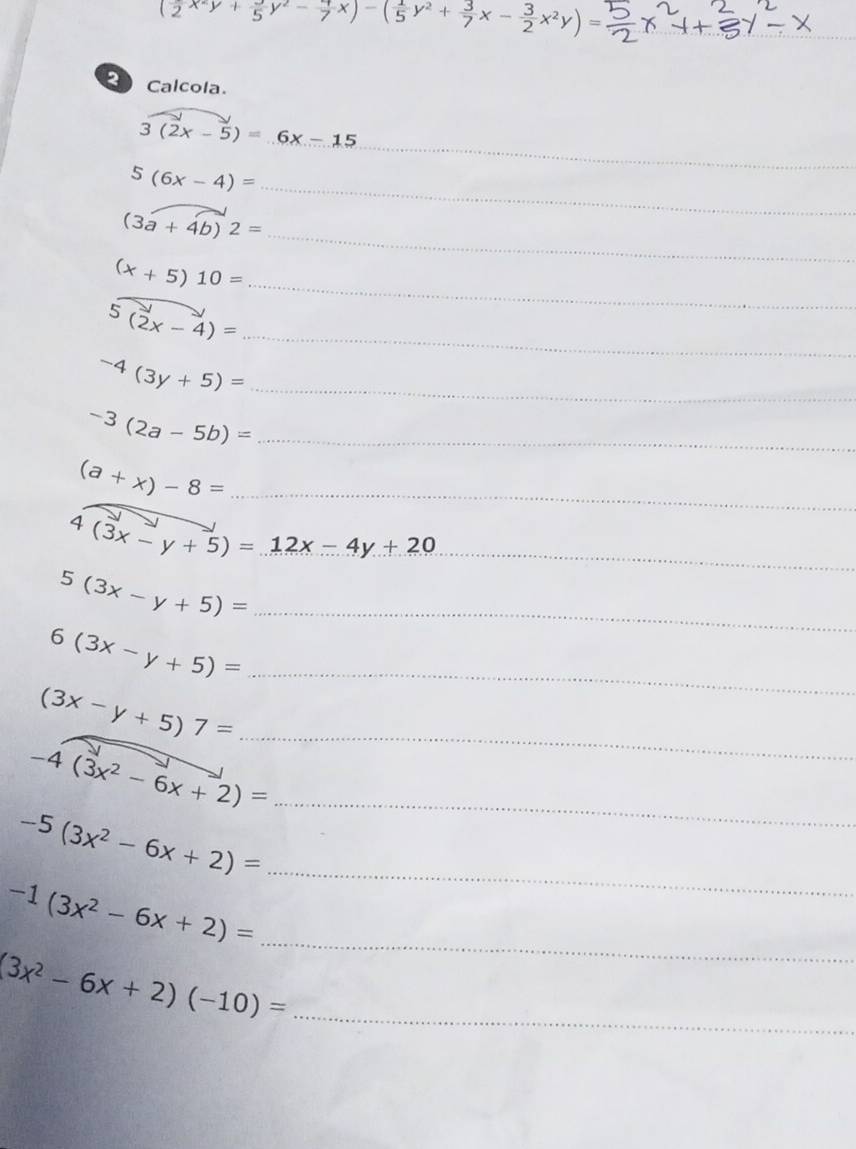 (_/2 x²y + 3/5 y² - 4/7 x) - (1/5 y² + 3/7 x - 3/2 x²y) = 5/2 x² y + 2/5 y² - x
2 Calcola.
3 (2x - 5) = 6x - 15
5 (6x - 4) =
(3a + 4b) 2 =
(x + 5) 10 =
5 (2x - 4) =
-4 (3y + 5) =
-3 (2a - 5b) =
(a + x) - 8 =
4 (3x - y + 5) = 12x - 4y + 20
5 (3x - y + 5) =
6 (3x - y + 5) =
(3x - y + 5) 7 =
-4 (3x² - 6x + 2) =
-5 (3x² - 6x + 2) =
-1 (3x² - 6x + 2) =
(3x² - 6x + 2) (-10) =